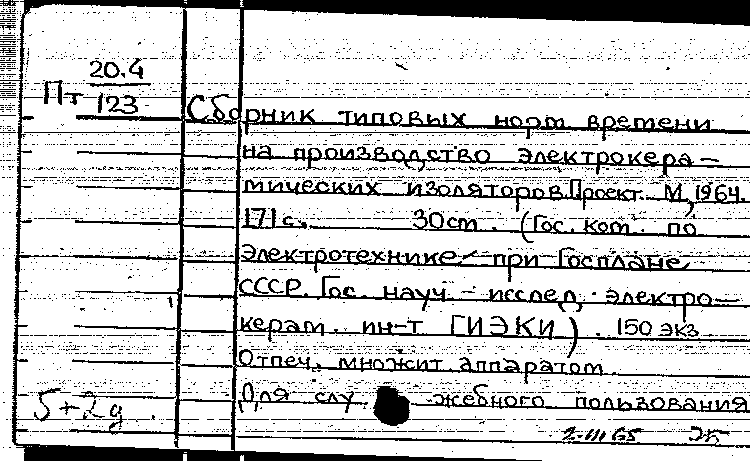 20.4
Пт 123
Сборник типовых норм времени
на производство электрокера-
мических изоляторов. Проект. М, 1964.
171 с. 30 cm. (Гос. ком. по
электротехнике при Госплане
СССР. Гос. науч-исслед. электро-
керам. ин-т ГИЭКИ). 150 экз
Отпеч. множит. аппаратом.
Для служебного пользования
5+2д.
2-III 65